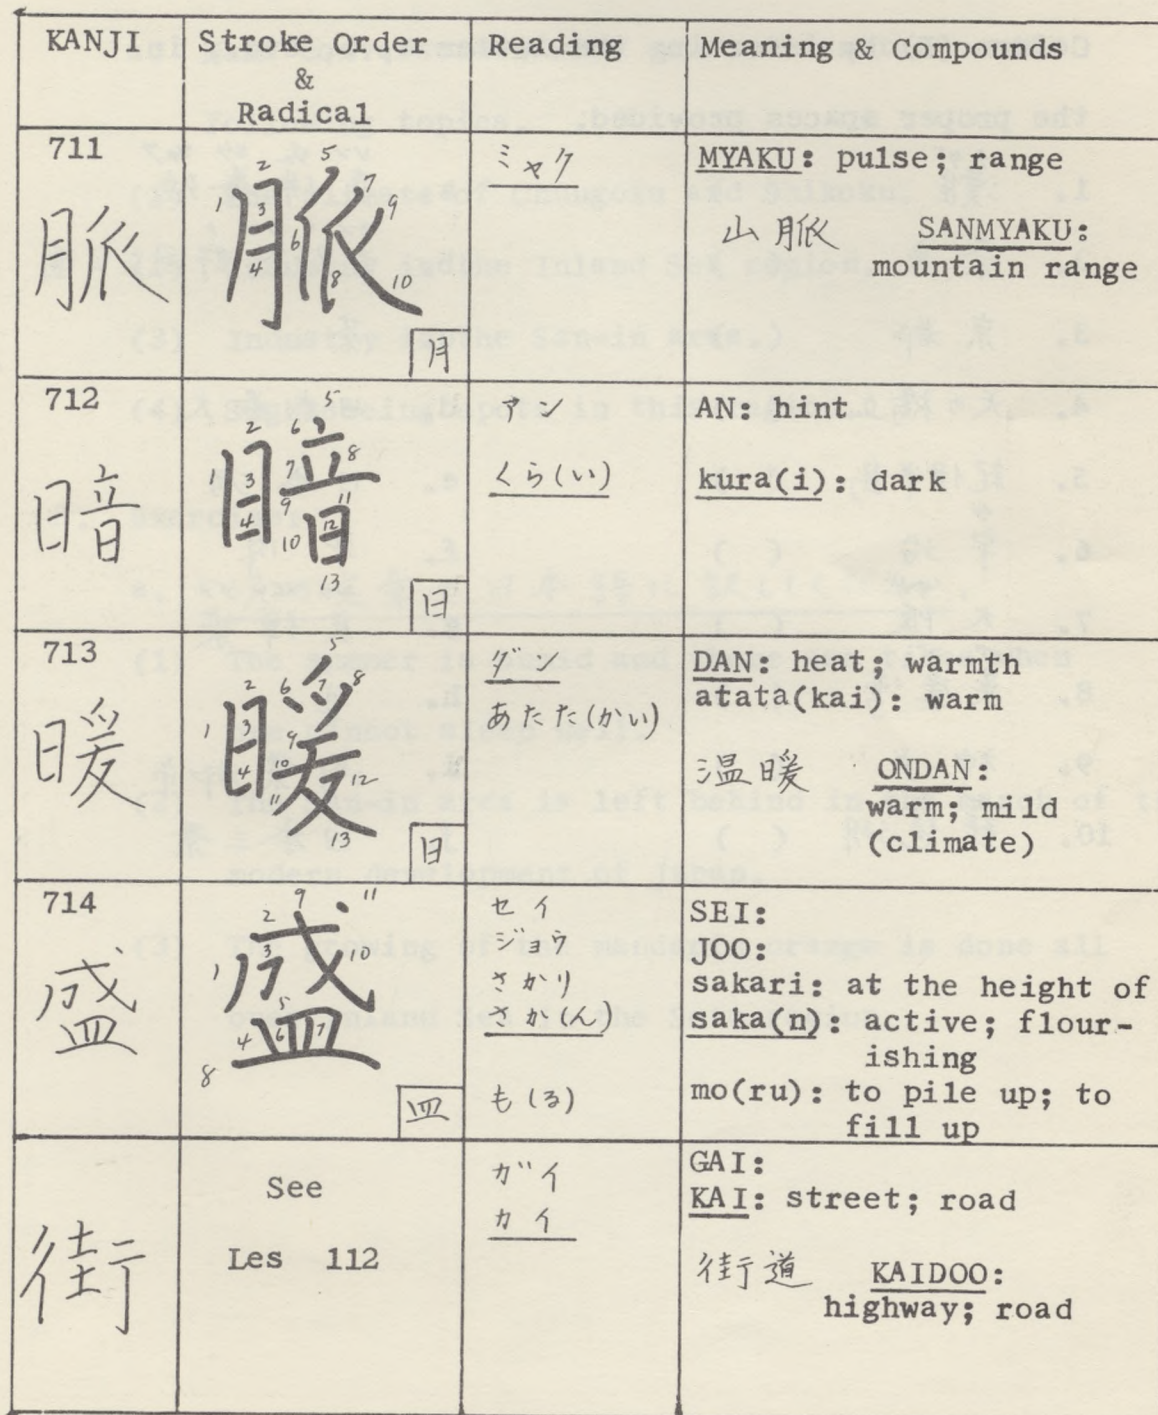 KANJI
Stroke Order
&
Radical
Reading
Meaning & Compounds
711
脈
1 2 3 4 5 6 7 8 9 10
脈
月
ミャク
MYAKU: pulse; range
山脈 SANMYAKU:
mountain range
712
暗
1 2 3 4 5 6 7 8 9 10 11 12 13
暗
日
アン
くら(い)
AN: hint
kura(i): dark
713
暖
1 2 3 4 5 6 7 8 9 10 11 12 13
暖
日
ダン
あたた(かい)
DAN: heat; warmth
atata(kai): warm
温暖 ONDAN:
warm; mild
(climate)
714
盛
1 2 3 4 5 6 7 8 9 10 11
盛
皿
セイ
ジョウ
さかり
さか(ん)
も(る)
SEI:
JOO:
sakari: at the height of
saka(n): active; flour-
ishing
mo(ru): to pile up; to
fill up
街
See
Les 112
ガイ
カイ
GAI:
KAI: street; road
街道 KAIDOO:
highway; road